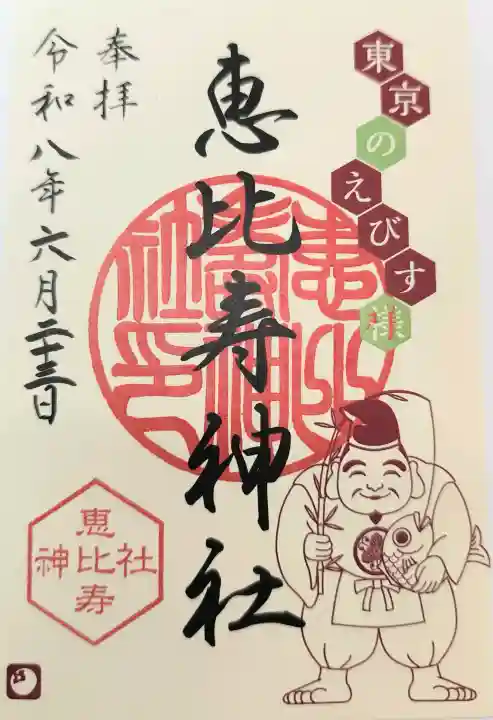 東京のえびす様
恵比寿神社
奉拝
令和八年六月二十三日
恵比寿神社印
恵比寿
神社